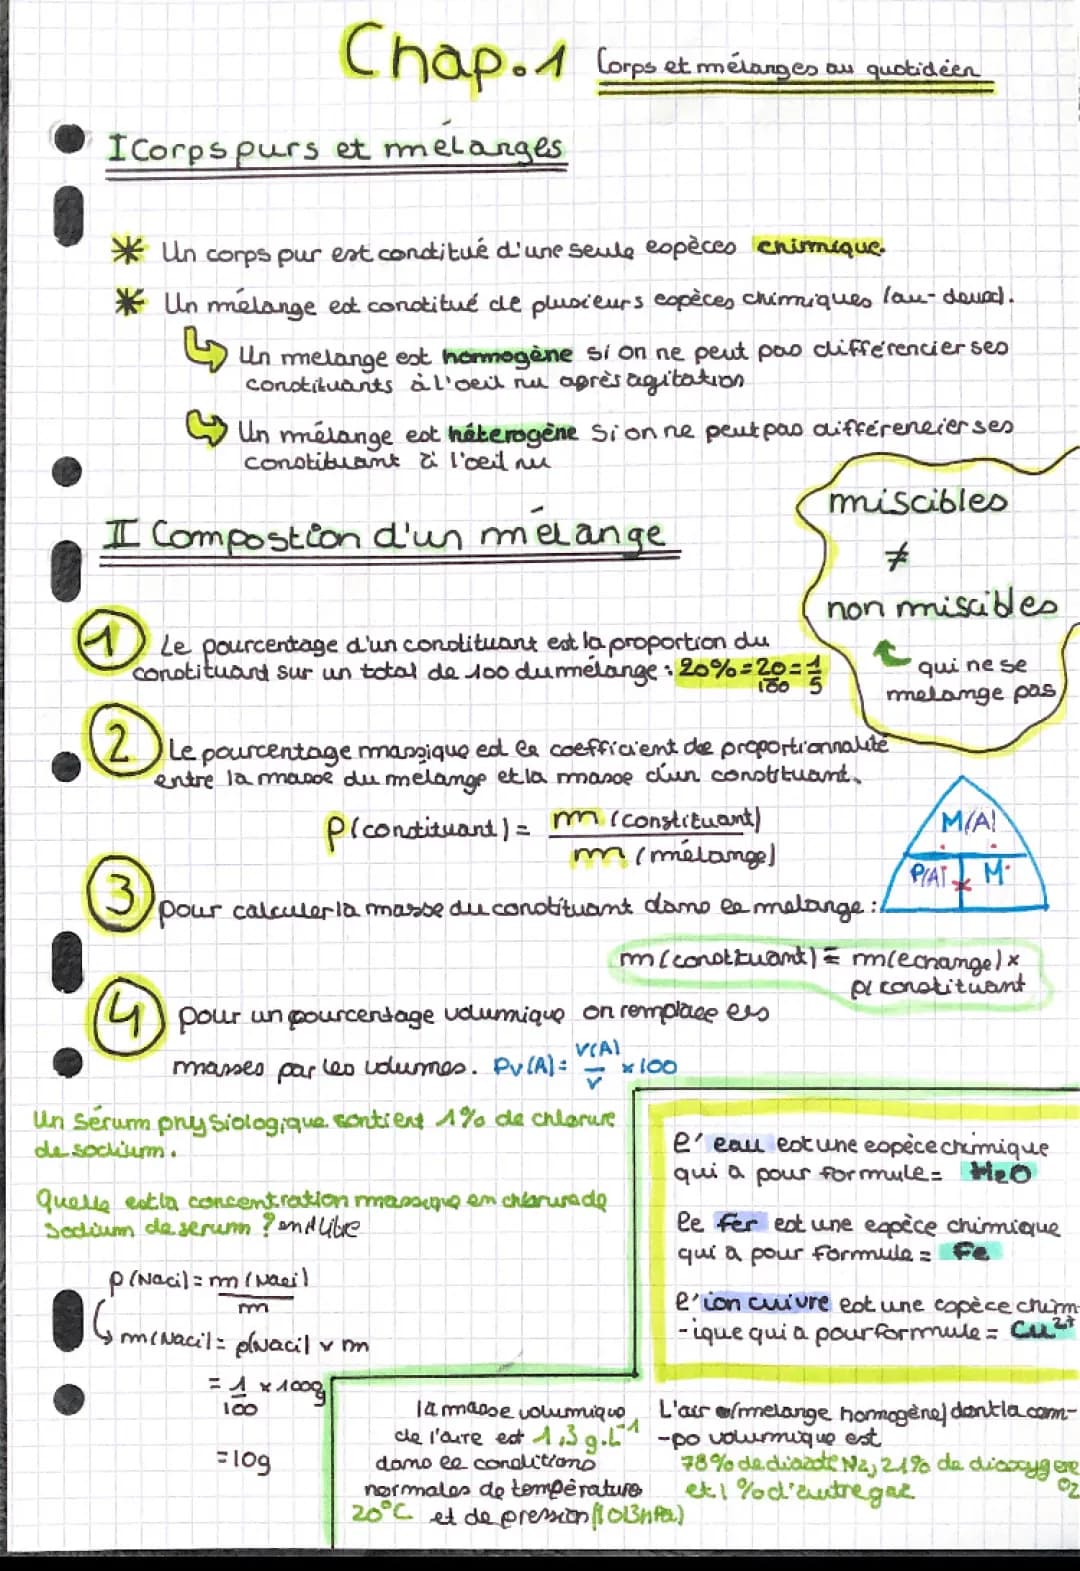 Chap.1 Corps et mélanges au quotidién
I Corps purs et mélanges
* Un corps pur est constitué d'une seule espèces chimique.
* Un mélange est constitué de plusieurs espèces chimiques (au-deux).
Un melange est hormogène si on ne peut pas différencier ses
constituants à l'oeil nu après agitation
Un mélange est héterogène Si on ne peut pas différencier ses
constituant à l'oeil nu
miscibles
≠
non miscibles
qui ne se
melange pas
II Compostion d'un mélange
1 Le pourcentage d'un constituant est la proportion du
constituant sur un total de 100 du mélange : 20% = 20/100 = 1/5
2 Le pourcentage massique est le coefficient de proportionnalité
entre la masse du mélange et la masse d'un constituant.
P(constituant) = m (constituant)/m (mélange)
M(A)
P(A) x M
3 pour calculer la masse du constituant dans le melange :
m (constituant) = m(echange) x
p( constituant
4 pour un pourcentage volumique on remplace les
masses par les volumes. Pv(A) = V(A)/V x 100
Un Sérum physiologique contient 1% de chlorure
de sodium.
Quelle est la concentration massique en chlorure de
Sodium de serum ? en dl/bre
p(Nacl) = m (Nacl)/m
m(Nacl) = p(Nacl) x m
= 1/100 x 100g
= 10g
l'eau est une espèce chimique
qui a pour formule = H2O
le fer est une espèce chimique
qui a pour formule = Fe
l'ion cuivre est une espèce chim-
-ique qui a pour formule = Cu²⁺
la masse volumique
de l'aire est 1,3 g.L⁻¹
dans les conditions
normales de température
20°C et de pression (1013hPa)
L'air (mélange homogène) dont la com-
-po volumique est
78% de diazote N2, 21% de dioxygene
O2
et 1 % d'autre gaz